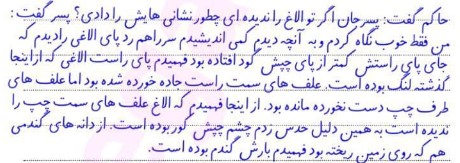 حاکم گفت: پسر جان اگر تو الاغ را ندیده ای چطور نشانی هایش را دادی؟ پسر گفت:
من فقط خوب نگاه کردم و به آنچه دیدم کمی اندیشیدم سر راهم رد پای الاغی را دیدم که
جای پای راستش کمتر از پای چپش گود افتاده بود فهمیدم پای راست الاغی که از اینجا
گذشته لنگ بوده است. علف های سمت راست جاده خورده شده بود اما علف های
طرف چپ دست نخورده مانده بود. از اینجا فهمیدم که الاغ علف های سمت چپ را
ندیده است به همین دلیل حدس زدم چشم چپش کور بوده است. از دانه های گندمی
هم که روی زمین ریخته بود فهمیدم بارش گندم بوده است.